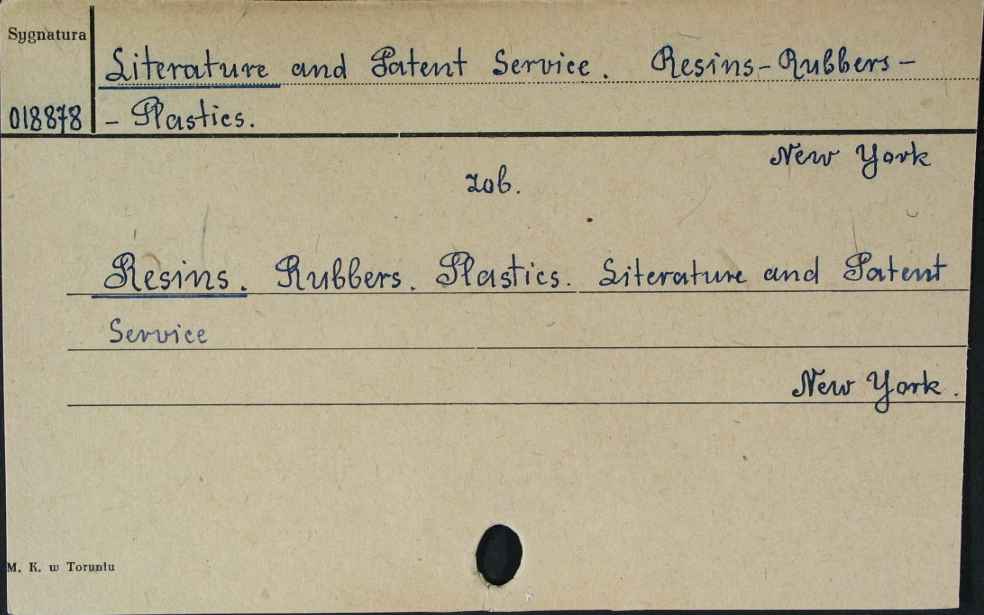 Sygnatura
Literature and Patent Service. Resins-Rubbers-
018878 - Plastics.
New York
zob.
Resins. Rubbers. Plastics. Literature and Patent
Service
New York.
M. K. w Toruniu